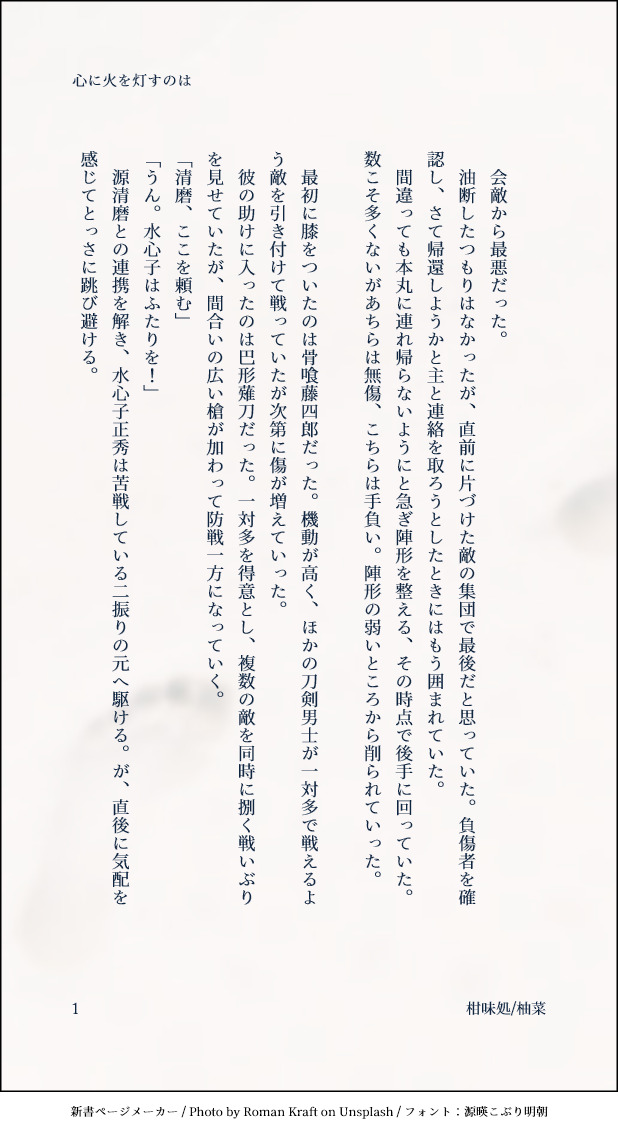 心に火を灯すのは
　会敵から最悪だった。
　油断したつもりはなかったが、直前に片づけた敵の集団で最後だと思っていた。負傷者を確
認し、さて帰還しようかと主と連絡を取ろうとしたときにはもう囲まれていた。
　間違っても本丸に連れ帰らないようにと急ぎ陣形を整える、その時点で後手に回っていた。
数こそ多くないがあちらは無傷、こちらは手負い。陣形の弱いところから削られていった。
　最初に膝をついたのは骨喰藤四郎だった。機動が高く、ほかの刀剣男士が一対多で戦えるよ
う敵を引き付けて戦っていたが次第に傷が増えていった。
　彼の助けに入ったのは巴形薙刀だった。一対多を得意とし、複数の敵を同時に捌く戦いぶり
を見せていたが、間合いの広い槍が加わって防戦一方になっていく。
「清磨、ここを頼む」
「うん。水心子はふたりを！」
　源清磨との連携を解き、水心子正秀は苦戦している二振りの元へ駆ける。が、直後に気配を
感じてとっさに跳び避ける。
1
柑味処/柚菜
新書ページメーカー / Photo by Roman Kraft on Unsplash / フォント：源暎こぶり明朝